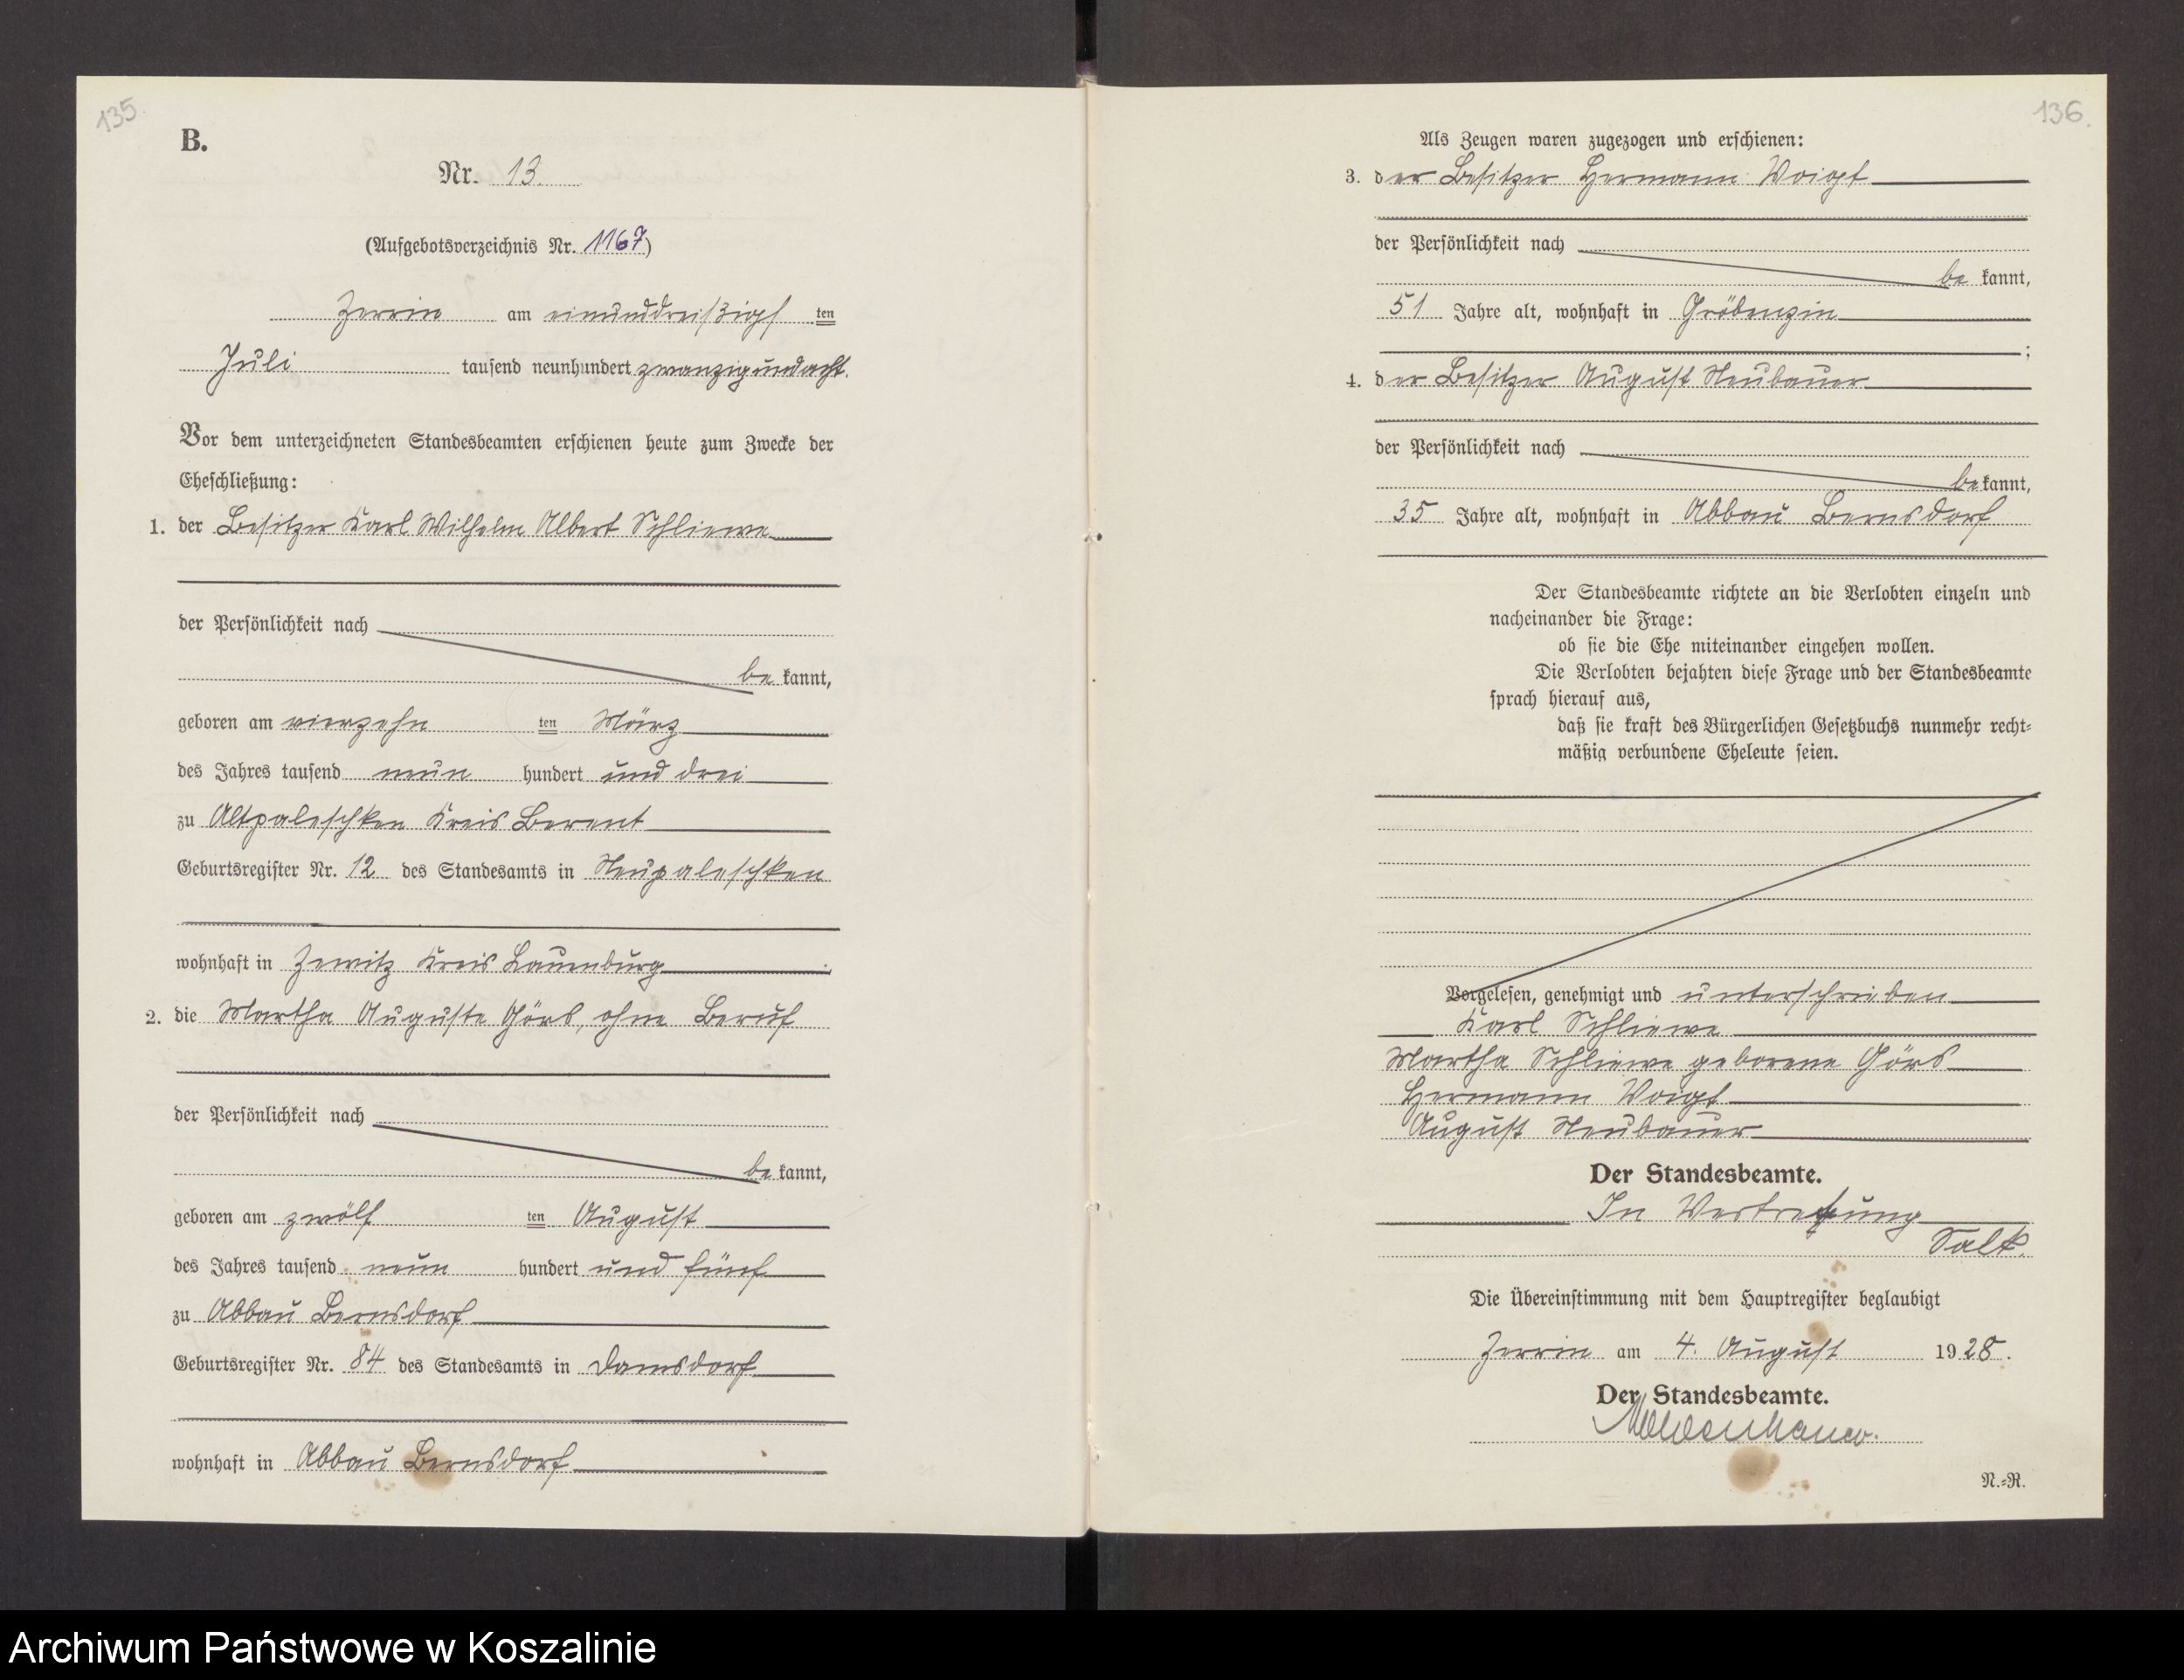 135.
B.
Nr. 13.
(Aufgebotsverzeichnis Nr. 1167)
Zerrin am einunddreißigsten
Juli tausend neunhundert zwanzigundacht.
Vor dem unterzeichneten Standesbeamten erschienen heute zum Zwecke der
Eheschließung:
1. der Besitzer Karl Wilhelm Albert Schliewe
der Persönlichkeit nach
bekannt,
geboren am vierzehnten März
des Jahres tausend neun hundert und drei
zu Altpaleschken Kreis Berent
Geburtsregister Nr. 12 des Standesamts in Neupaleschken
wohnhaft in Zewitz Kreis Lauenburg.
2. die Martha Auguste Görs, ohne Beruf
der Persönlichkeit nach
bekannt,
geboren am zwölften August
des Jahres tausend neun hundert und fünf
zu Abbau Bernsdorf
Geburtsregister Nr. 84 des Standesamts in Damsdorf
wohnhaft in Abbau Bernsdorf
136.
Als Zeugen waren zugezogen und erschienen:
3. der Besitzer Hermann Voigt
der Persönlichkeit nach
bekannt,
51 Jahre alt, wohnhaft in Gröbenzin
;
4. der Besitzer August Neubauer
der Persönlichkeit nach
bekannt,
35 Jahre alt, wohnhaft in Abbau Bernsdorf
Der Standesbeamte richtete an die Verlobten einzeln und
nacheinander die Frage:
ob sie die Ehe miteinander eingehen wollen.
Die Verlobten bejahten diese Frage und der Standesbeamte
sprach hierauf aus,
daß sie kraft des Bürgerlichen Gesetzbuchs nunmehr recht-
mäßig verbundene Eheleute seien.
Vorgelesen, genehmigt und unterschrieben
Karl Schliewe
Martha Schliewe geborene Görs
Hermann Voigt
August Neubauer
Der Standesbeamte.
In Vertretung
Salk.
Die Übereinstimmung mit dem Hauptregister beglaubigt
Zerrin am 4. August 1928.
Der Standesbeamte.
Moldenhauer.
N.-R.
Archiwum Państwowe w Koszalinie